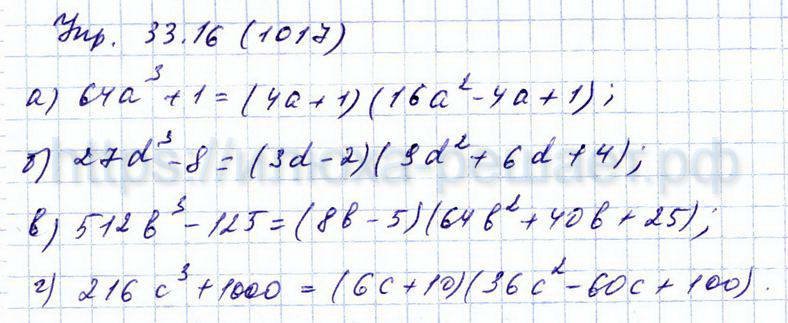 Упр. 33.16 (1017)
а) 64a³+1=(4a+1)(16a²-4a+1);
б) 27d³-8=(3d-2)(9d²+6d+4);
в) 512b³-125=(8b-5)(64b²+40b+25);
г) 216c³+1000=(6c+10)(36c²-60c+100).